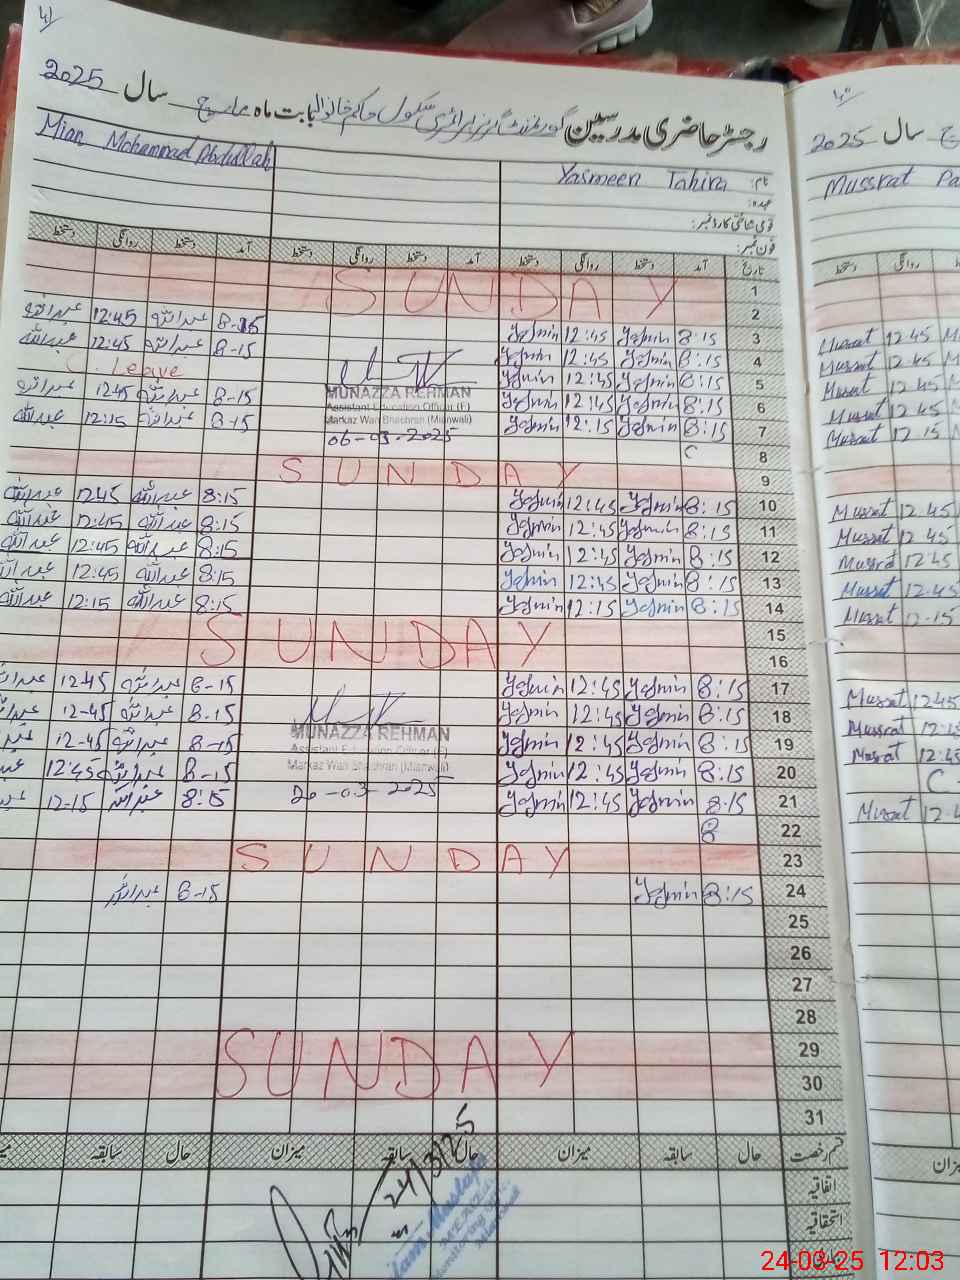 رجسٹر حاضری مدرسین گورنمنٹ گرلز پرائمری سکول حاکم خانوالا بابت ماہ مارچ سال 2025
Mian Mohammad Abdullah Yasmeen Tahira نام:
عہدہ:
قومی شناختی کارڈ نمبر:
فون نمبر:
تاریخ آمد دستخط روانگی دستخط آمد دستخط روانگی دستخط آمد دستخط روانگی دستخط
SUNDAY 1
2
عبداللہ 12:45 عبداللہ 8-15 Yasmin 12:45 Yasmin 8:15 3
عبداللہ 12:45 عبداللہ 8-15 Yasmin 12:45 Yasmin 8:15 4
C. Leave Yasmin 12:45 Yasmin 8:15 5
عبداللہ 12:45 عبداللہ 8-15 MUNAZZA REHMAN Yasmin 12:45 Yasmin 8:15 6
Assistant Education Officer (F)
عبداللہ 12:15 عبداللہ 8-15 Markaz Wan Bhachran (Mianwali) Yasmin 12:15 Yasmin 8:15 7
06-03-2025
8
SUNDAY 9
عبداللہ 12:45 عبداللہ 8:15 Yasmin 12:45 Yasmin 8:15 10
عبداللہ 12:45 عبداللہ 8:15 Yasmin 12:45 Yasmin 8:15 11
عبداللہ 12:45 عبداللہ 8:15 Yasmin 12:45 Yasmin 8:15 12
عبداللہ 12:45 عبداللہ 8:15 Yasmin 12:45 Yasmin 8:15 13
عبداللہ 12:15 عبداللہ 8:15 Yasmin 12:15 Yasmin 8:15 14
SUNDAY 15
16
عبداللہ 12:45 عبداللہ 8-15 Yasmin 12:45 Yasmin 8:15 17
12-45 عبداللہ 8-15 Yasmin 12:45 Yasmin 8:15 18
12-45 عبداللہ 8-15 MUNAZZA REHMAN Yasmin 12:45 Yasmin 8:15 19
Assistant Education Officer (F)
12:45 عبداللہ 8-15 Markaz Wan Bhachran (Mianwali) Yasmin 12:45 Yasmin 8:15 20
12-15 عبداللہ 8:15 20-03-2025 Yasmin 12:45 Yasmin 8:15 21
8 22
SUNDAY 23
عبداللہ 8-15 Yasmin 8:15 24
25
26
27
28
SUNDAY 29
30
31
قسم رخصت حال سابقہ میزان حال سابقہ میزان حال سابقہ
اتفاقیہ
استحقاقیہ
24/3/25
سال 2025
Mussrat
دستخط روانگی
Mussrat 12 45
Mussrat 12 45
Mussrat 12 45
Mussrat 12 45
Mussrat 12 15
Mussrat 12 45
Mussrat 12 45
Mussrat 12 45
Mussrat 12-45
Mussrat 12-15
Mussrat 12 45
Mussrat
Mussrat 12:45
C
Mussrat
24-03-25 12:03